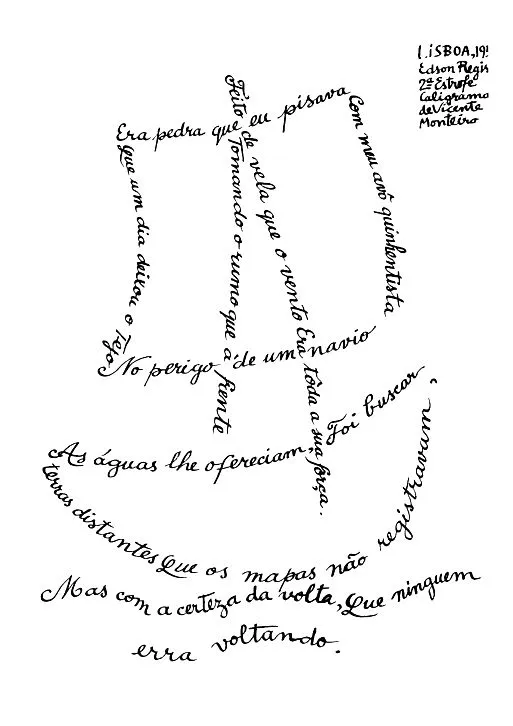 LISBOA, 19!
Edson Regis
2ª Estrofe
Caligrama
de Vicente
Monteiro
Era pedra que eu pisava
Com meu avô quinhentista
Que um dia deixou o Tejo
No perigo de um navio
Feito de vela que o vento Era tôda a sua força.
Tomando o rumo que a frente
As águas lhe ofereciam, Foi buscar
terras distantes Que os mapas não registravam,
Mas com a certeza da volta, Que ninguem
erra voltando.